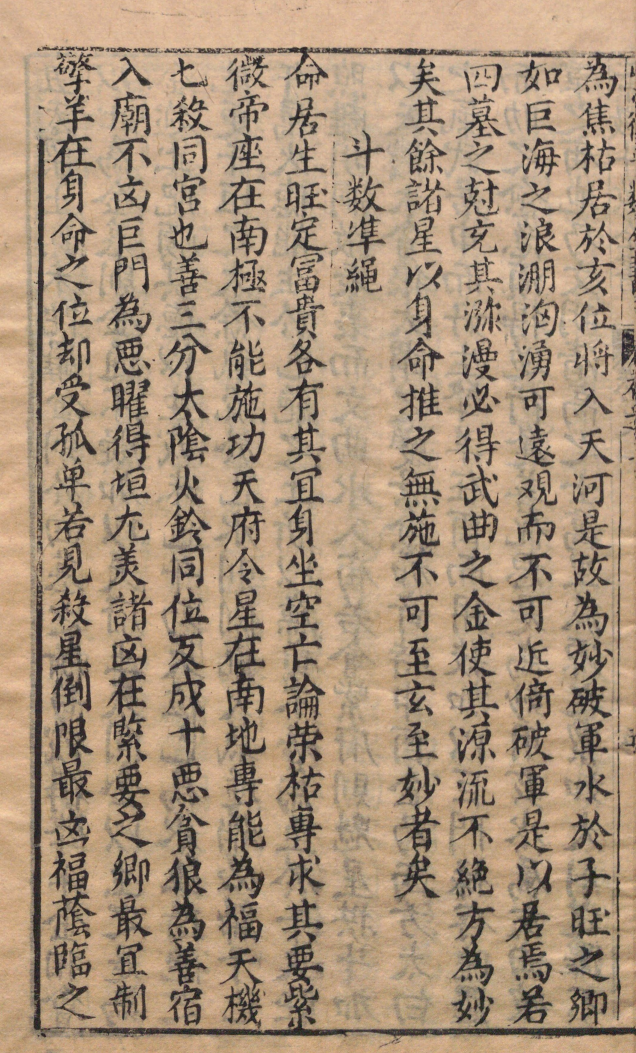 為焦枯居於亥位將入天河是故為妙破軍水於子旺之鄉
如巨海之浪淜洶湧可遠观而不可近倚破軍是以居焉若
四墓之尅充其瀰漫必得武曲之金使其源流不絕方為妙
矣其餘諸星以身命推之無施不可至玄至妙者矣
斗数準繩
命居生旺定冨貴各有其冝身坐空亡論荣枯專求其要紫
微帝座在南極不能施功天府令星在南地專能為福天機
七殺同宮也善三分太陰火鈴同位反成十惡貪狼為善宿
入廟不凶巨門為惡曜得垣尤美諸凶在緊要之鄉最冝制
擎羊在身命之位却受孤单若見殺星倒限最凶福蔭臨之